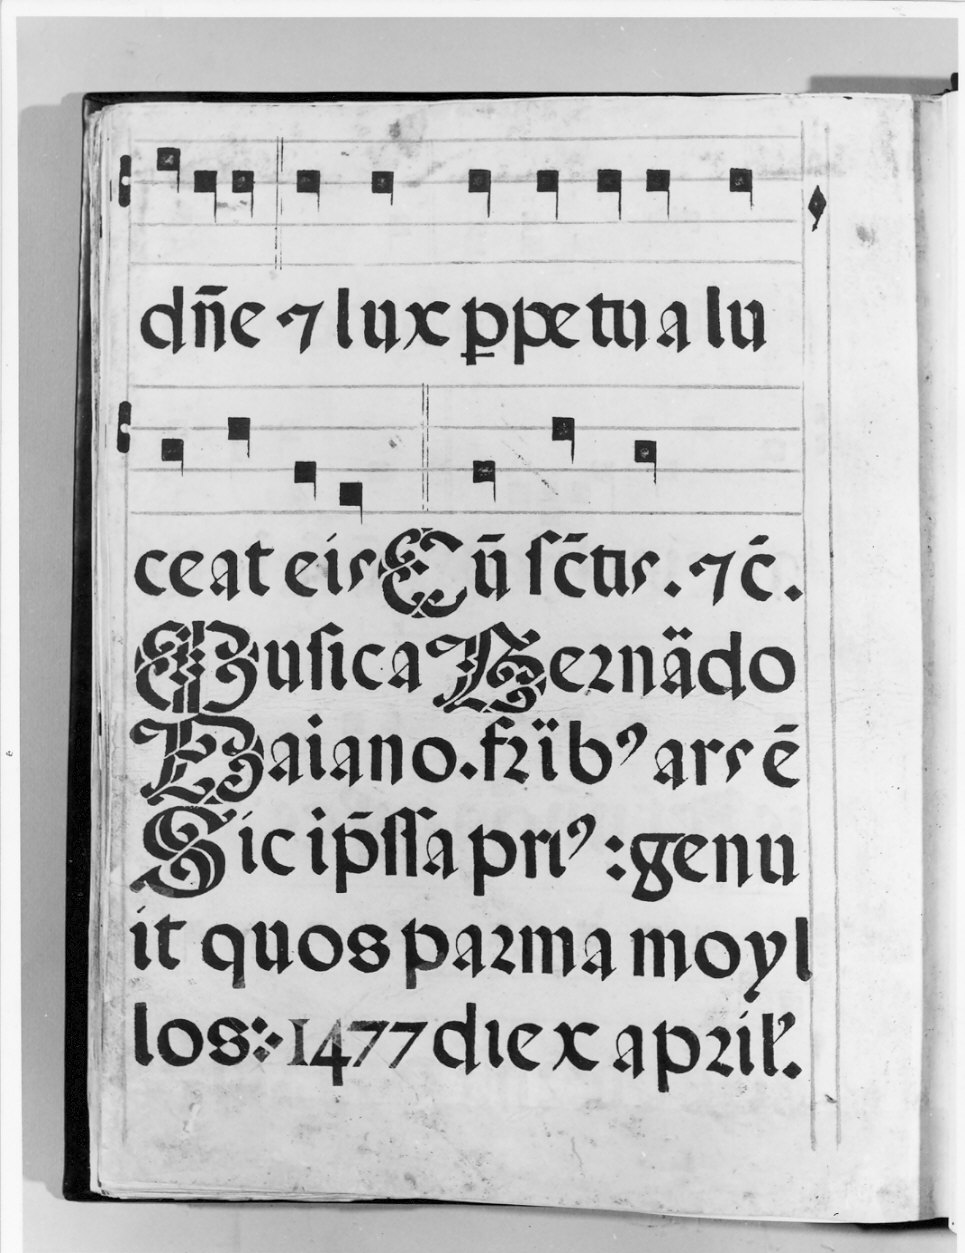 dn̄e ⁊ lux ꝑpetua lu
ceat eis Cū sc̄tis. ⁊ c̄.
Musica Bernädo
Baiano. frïbꝰ ars ē
Sic ip̄ssa priꝰ : genu
it quos parma moyl
los: 1477 die x april'.